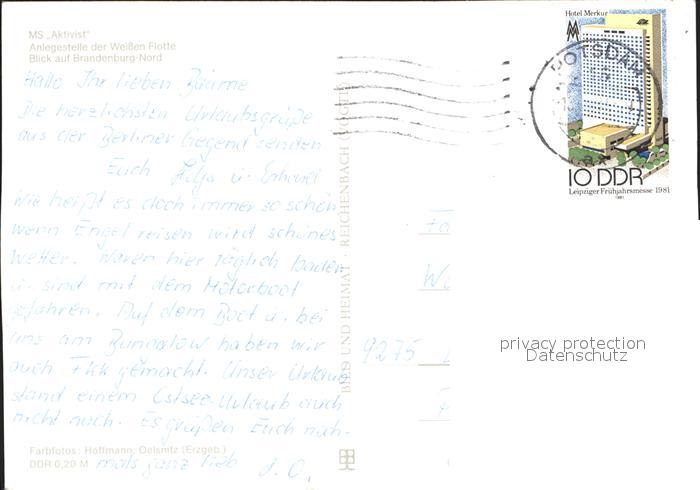 MS „Aktivist"
Anlegestelle der Weißen Flotte
Blick auf Brandenburg-Nord
Hallo Ihr lieben Bäume
Die herzlichsten Urlaubsgrüße
aus der Berliner Gegend senden
Euch u. Erhard
Wie heißt es doch immer so schön
wenn Engel reisen wird schönes
Wetter. Waren hier täglich baden
u. sind mit dem Motorboot
gefahren. Auf dem Boot u. bei
uns am Bungalow haben wir
auch FKK gemacht. Unser Urlaub
stand einem Ostsee-Urlaub auch
nicht nach. Es grüßen Euch noch-
mals ganz lieb d. O.
Farbfotos: Hoffmann, Oelsnitz (Erzgeb.)
DDR 0,20 M
BILD UND HEIMAT · REICHENBACH
Hotel Merkur
MM
POTSDAM
10 DDR
Leipziger Frühjahrsmesse 1981
1981
Fa
Wo
9275
privacy protection
Datenschutz